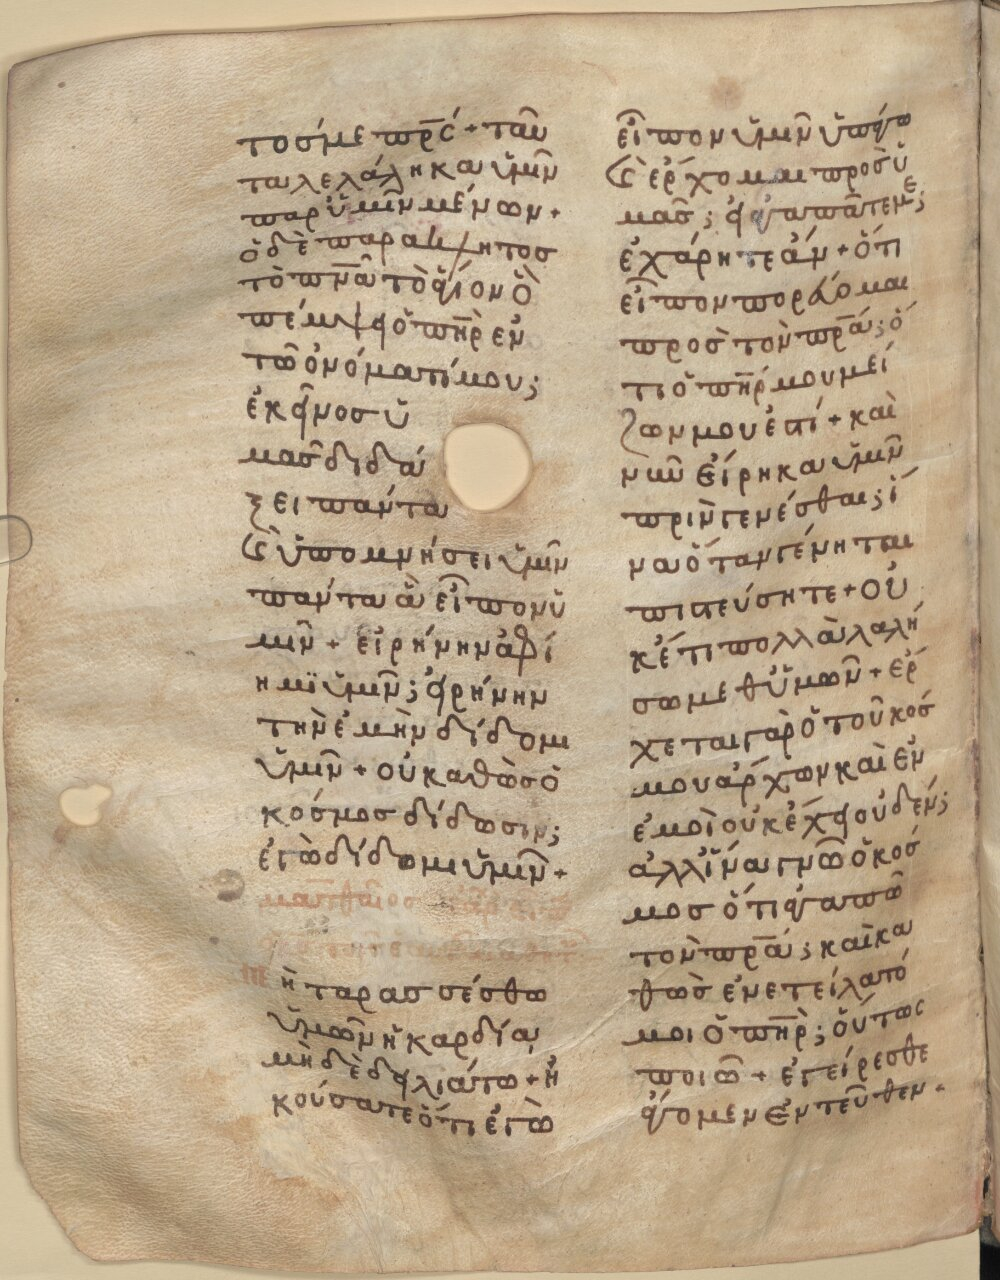 τοσ με πρ̅ς + ταῦ
τα λελάληκα ὑμῖν
παρ ὑμῖν μένων +
ὁ δὲ παράκλητοσ
τὸ πν̅α τὸ ἅγιον ὃ
πέμψει ὁ πη̅ρ ἐν
τῶ ὀνόματί μου ;
ἐκεῖνοσ ὑ
μᾶσ διδά
ξει πάντα
καὶ ὑπομνήσει ὑμῖν
πάντα ἃ εἶπον ὑ
μῖν + εἰρήνην ἀφί
ημι ὑμῖν ; εἰρήνην
τὴν ἐμὴν δίδομι
ὑμῖν + οὐ καθὼσ ὁ
κόσμοσ δίδωσιν ;
ἐγὼ δίδωμι ὑμῖν +
μὴ ταρασσέσθω
ὑμῶν ἡ καρδία
μὴ δὲ δειλιάτω + ἠ
κούσατε ὅτι ἐγὼ
εἶπον ὑμῖν ὑπάγω
καὶ ἔρχομαι πρὸσ ὑ
μᾶσ ; εἰ ἠγαπᾶτε με ;
ἐχάρητε ἄν + ὅτι
εἶπον πορεύομαι
πρὸσ τὸν πρ̅α ; ὅ
τι ὁ πη̅ρ μου μεί
ζων μου ἐστί + καὶ
νῦν εἴρηκα ὑμῖν
πρὶν γενέσθαι ; ἵ
να ὅταν γένηται
πιστεύσητε + οὐ
κέτι πολλὰ λαλή
σω μεθ ὑμῶν + ἔρ
χεται γὰρ ὁ τοῦ κόσ
μου ἄρχων καὶ ἐν
ἐμοὶ οὐκ ἔχει οὐδέν ;
ἀλλ ἵνα γνῶ ὁ κόσ
μοσ ὅτι ἀγαπῶ
τὸν πρ̅α ; καὶ κα
θὼσ ἐνετείλατό
μοι ὁ πη̅ρ ; οὕτως
ποιῶ + ἐγείρεσθε
ἄγομεν ἐντεῦθεν .